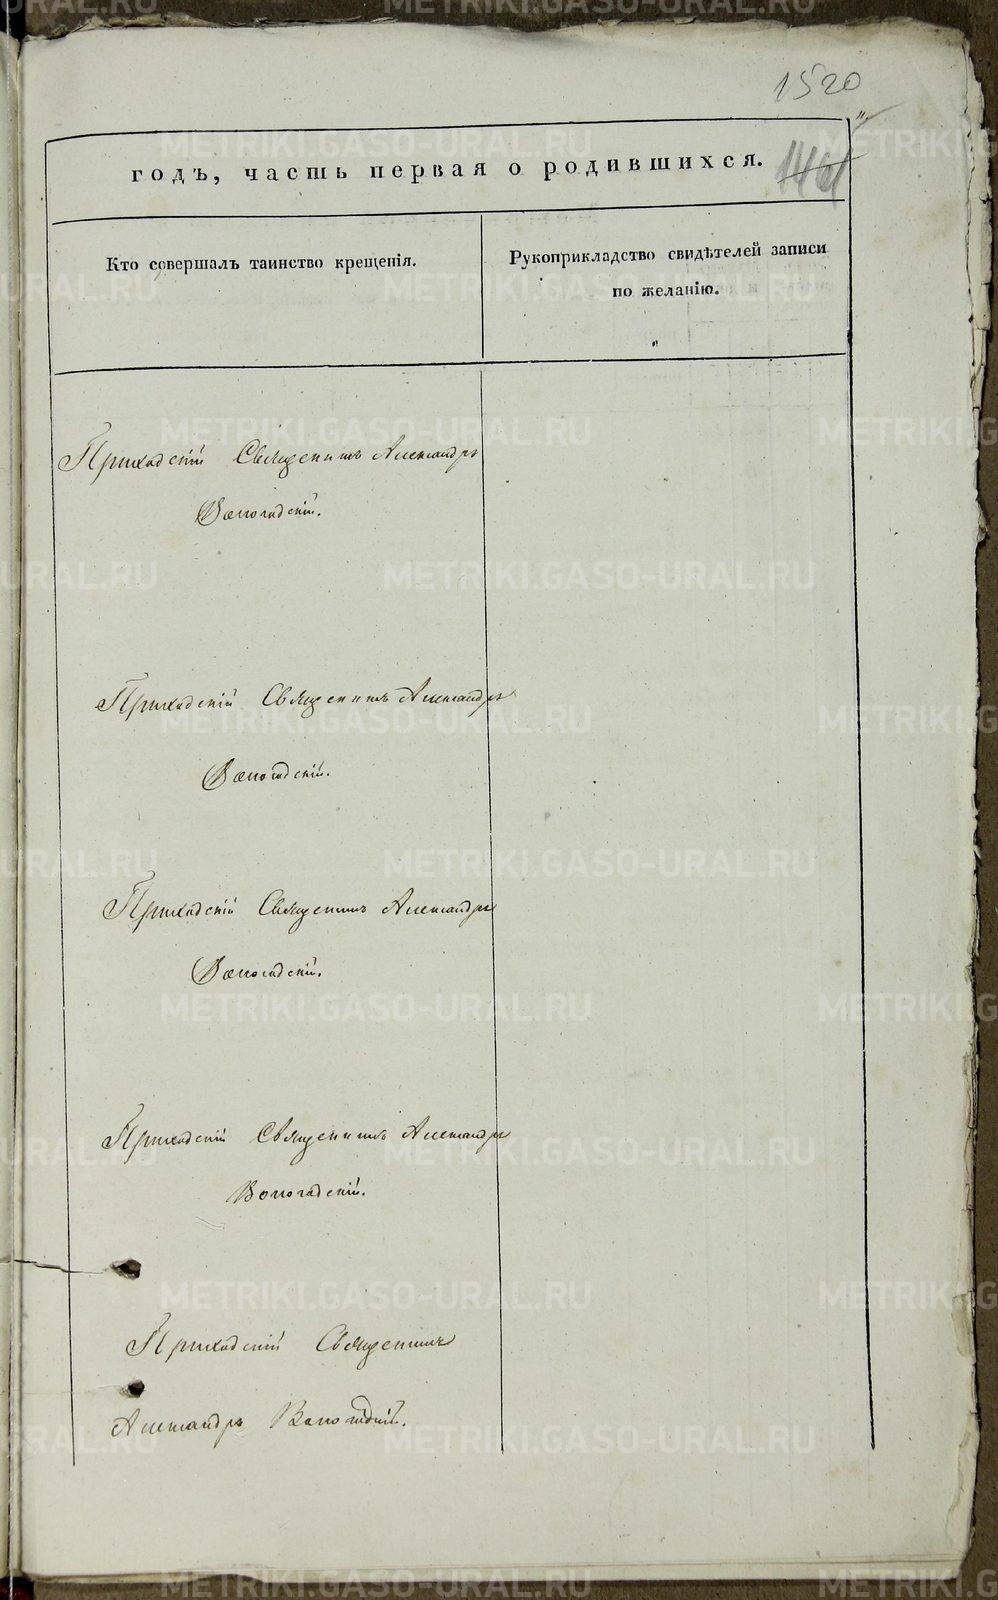 1520
годъ, часть первая о родившихся.
1461
Кто совершалъ таинство крещенія.
Рукоприкладство свидѣтелей записи
по желанію.
Приходскій Священникъ Александръ
Вологодскій.
Приходскій Священникъ Александръ
Вологодскій.
Приходскій Священникъ Александръ
Вологодскій.
Приходскій Священникъ Александръ
Вологодскій.
Приходскій Священникъ
Александръ Вологодскій.
METRIKI.GASO-URAL.RU